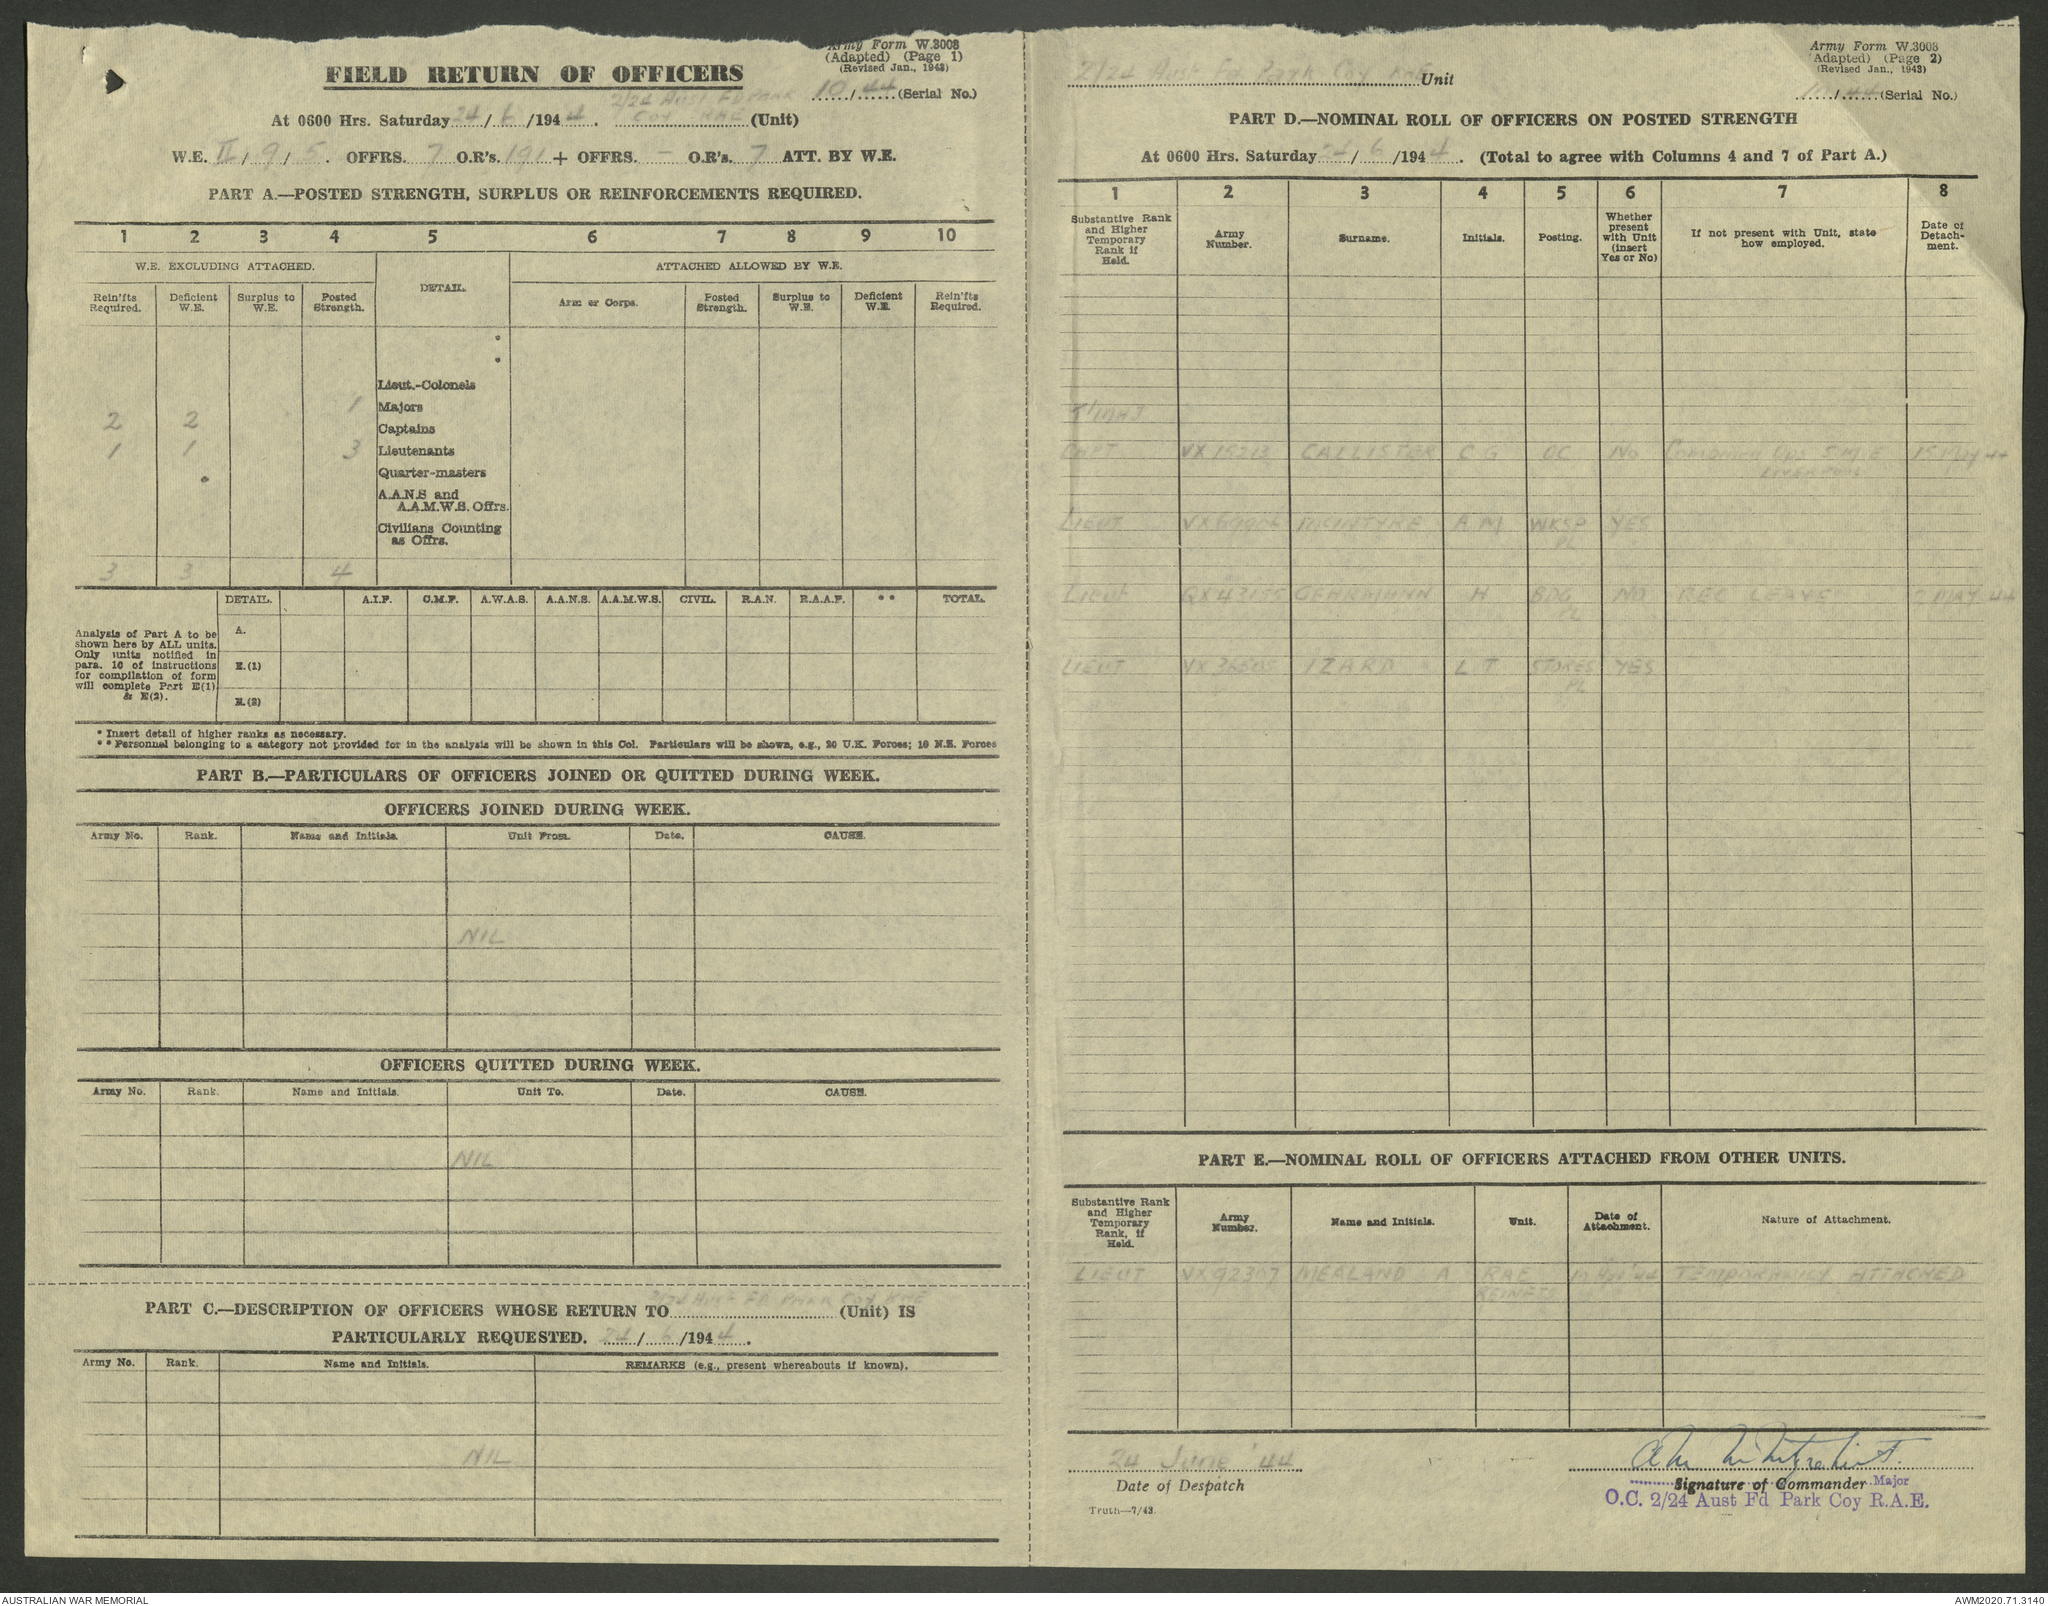 Army Form W.3008
(Adapted) (Page 1)
(Revised Jan., 1943)
FIELD RETURN OF OFFICERS
10/44 (Serial No.)
2/24 Aust FD PARK
At 0600 Hrs. Saturday 24/6/1944. COY RAE (Unit)
W.E. II/9/5. OFFRS. 7 O.R's. 191 + OFFRS. — O.R's. 7 ATT. BY W.E.
PART A.—POSTED STRENGTH, SURPLUS OR REINFORCEMENTS REQUIRED.
1 2 3 4 5 6 7 8 9 10
W.E. EXCLUDING ATTACHED. DETAIL. ATTACHED ALLOWED BY W.E.
Rein'fts Required. Deficient W.E. Surplus to W.E. Posted Strength. Arm or Corps. Posted Strength. Surplus to W.E. Deficient W.E. Rein'fts Required.
*
*
Lieut.-Colonels
1 Majors
2 2 Captains
1 1 3 Lieutenants
Quarter-masters
A.A.N.S and
A.A.M.W.S. Offrs.
Civilians Counting
as Offrs.
3 3 4
DETAIL. A.I.F. C.M.F. A.W.A.S. A.A.N.S. A.A.M.W.S. CIVIL. R.A.N. R.A.A.F. ** TOTAL.
Analysis of Part A to be
shown here by ALL units.
Only units notified in
para. 10 of instructions
for compilation of form
will complete Part E(1)
& E(2).
A.
E.(1)
E.(2)
* Insert detail of higher ranks as necessary.
** Personnel belonging to a category not provided for in the analysis will be shown in this Col. Particulars will be shown, e.g., 20 U.K. Forces; 10 N.E. Forces
PART B.—PARTICULARS OF OFFICERS JOINED OR QUITTED DURING WEEK.
OFFICERS JOINED DURING WEEK.
Army No. Rank. Name and Initials. Unit From. Date. CAUSE.
NIL
OFFICERS QUITTED DURING WEEK.
Army No. Rank. Name and Initials. Unit To. Date. CAUSE.
NIL
2/24 AUST FD PARK COY RAE
PART C.—DESCRIPTION OF OFFICERS WHOSE RETURN TO (Unit) IS
PARTICULARLY REQUESTED. 24/6/1944.
Army No. Rank. Name and Initials. REMARKS (e.g., present whereabouts if known).
NIL
Army Form W.3008
(Adapted) (Page 2)
(Revised Jan., 1943)
2/24 Aust Fd Park Coy RAE Unit
10/44 (Serial No.)
PART D.—NOMINAL ROLL OF OFFICERS ON POSTED STRENGTH
At 0600 Hrs. Saturday 24/6/1944. (Total to agree with Columns 4 and 7 of Part A.)
1 2 3 4 5 6 7 8
Substantive Rank and Higher Temporary Rank if Held. Army Number. Surname. Initials. Posting. Whether present with Unit (insert Yes or No) If not present with Unit, state how employed. Date of Detachment.
T/MAJ
CAPT VX15213 CALLISTER C G OC No Combined Ops S.M.E 15 MAY 44
LIVERPOOL
LIEUT McINTYRE A M WKSP YES
PL
LIEUT QX43155 GEHRMANN H BDG NO REC LEAVE MAY 44
PL
LIEUT VX36505 IZARD L T STORES YES
PL
PART E.—NOMINAL ROLL OF OFFICERS ATTACHED FROM OTHER UNITS.
Substantive Rank and Higher Temporary Rank, if Held. Army Number. Name and Initials. Unit. Date of Attachment. Nature of Attachment.
LIEUT VX92307 MEALAND A RAE TEMPORARILY ATTACHED
REINFTS
24 June '44
Date of Despatch
Signature of Commander Major
O.C. 2/24 Aust Fd Park Coy R.A.E.
Truth—7/43.
AUSTRALIAN WAR MEMORIAL
AWM2020.71.3140